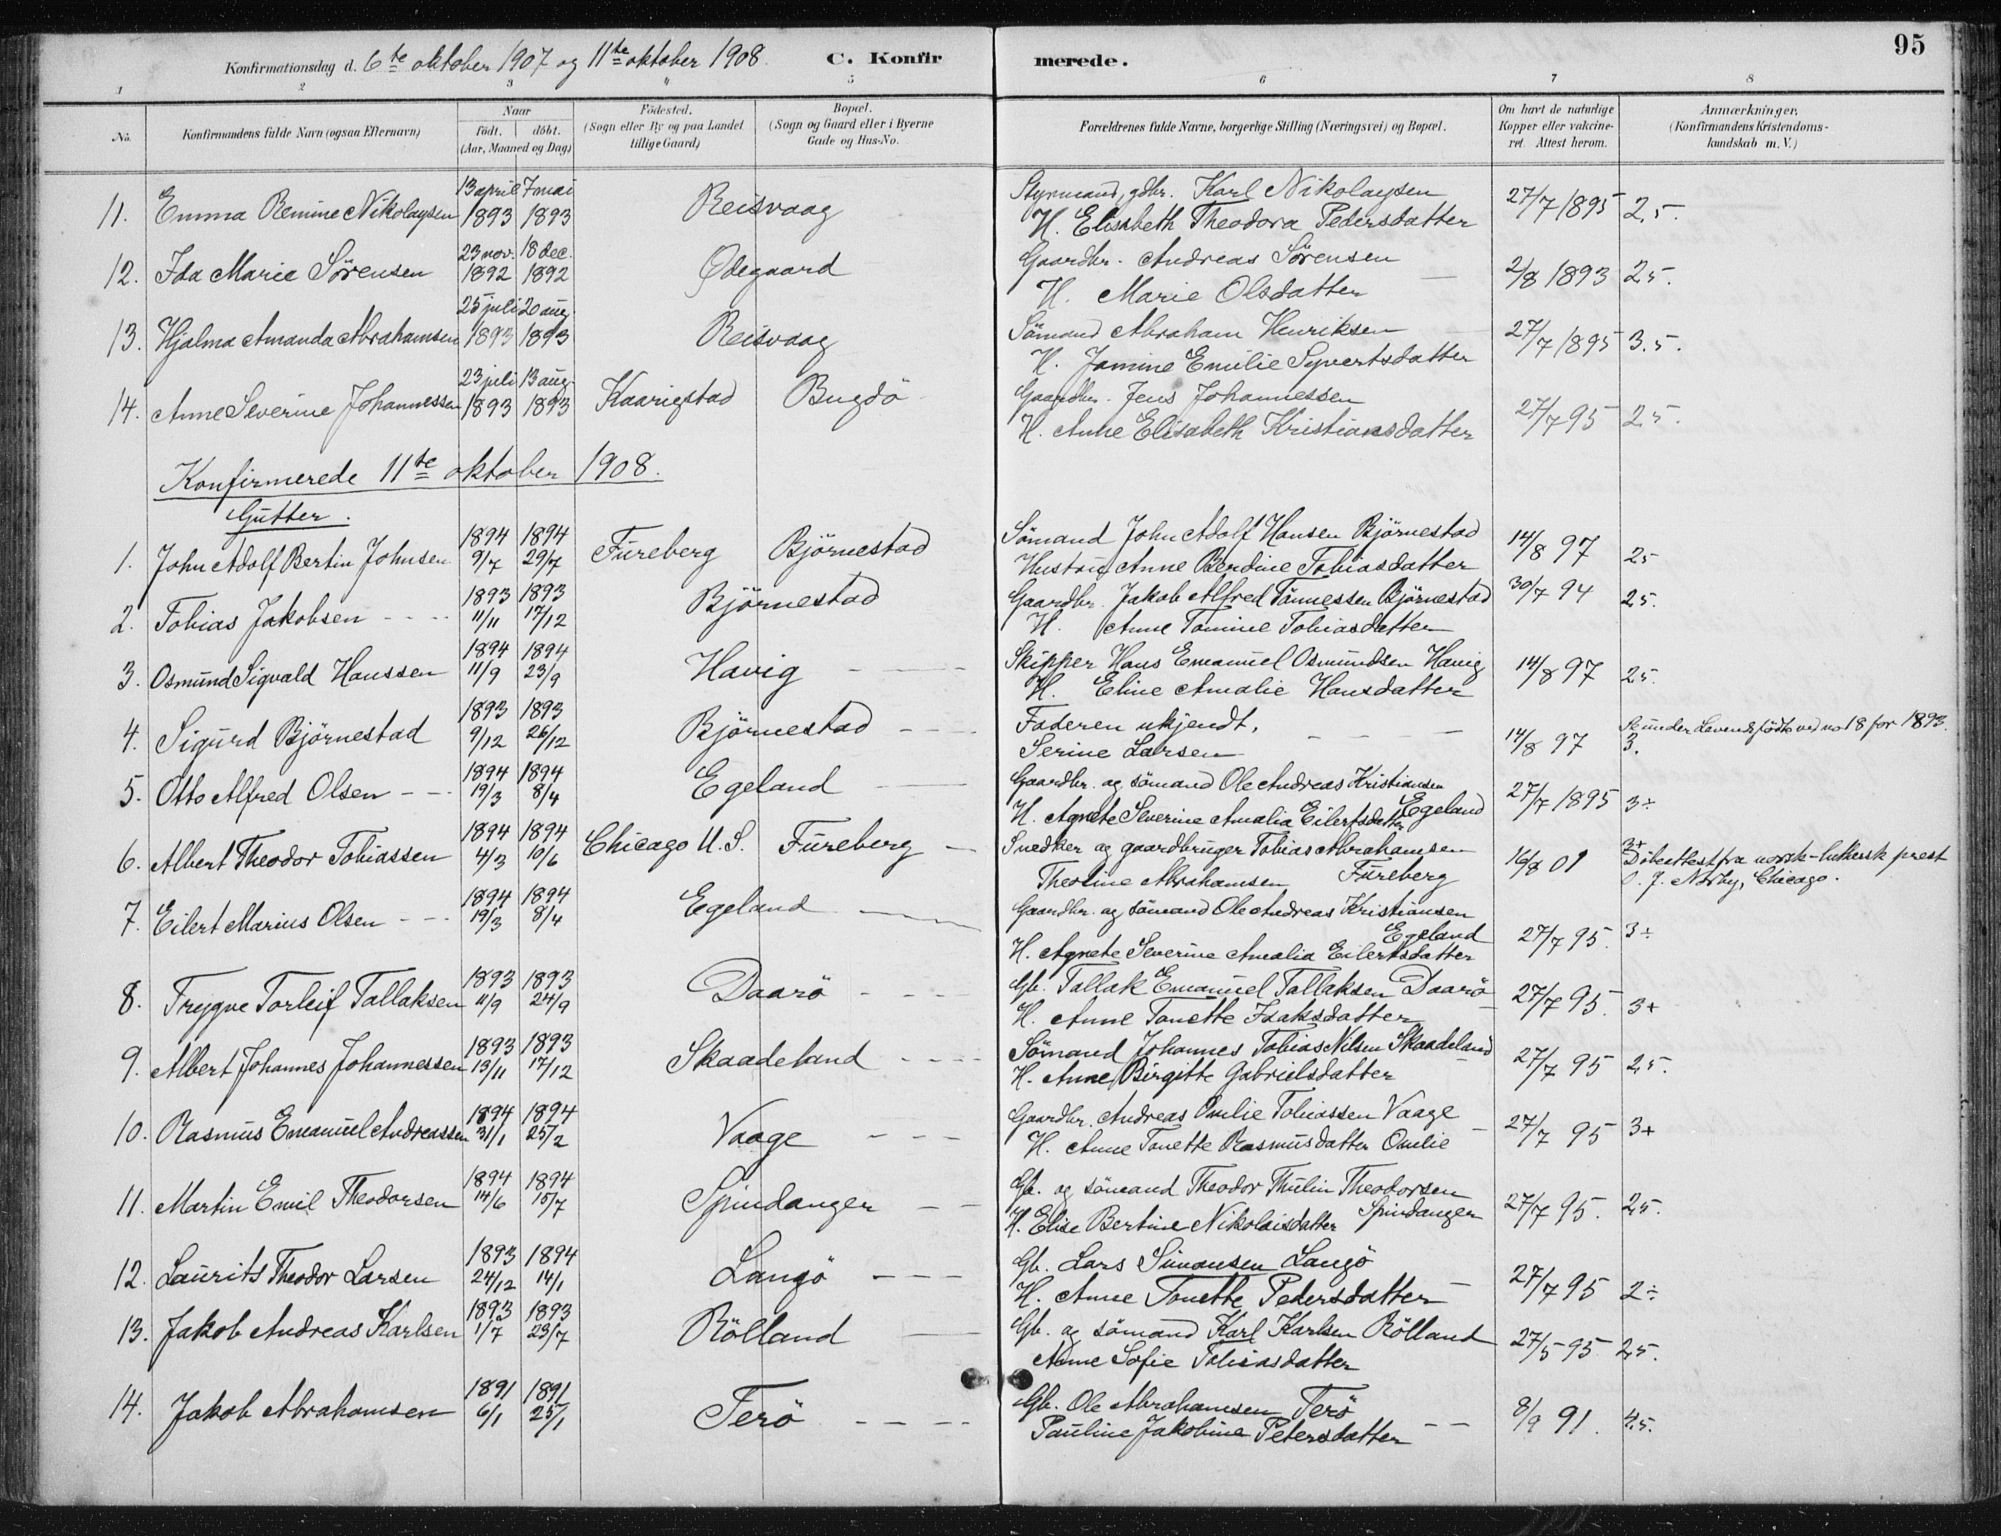 Konfirmationsdag d. 6te oktober 1907 og 11te oktober 1908. C. Konfirmerede. 95
1 2 3 4 5 6 7 8
No. Konfirmandens fulde Navn (ogsaa Efternavn) Naar födt. döbt. (Aar, Maaned og Dag) Födested. (Sogn eller By og paa Landet tillige Gaard) Bopæl. (Sogn og Gaard eller i Byerne Gade og Hus-No. Forældrenes fulde Navne, borgerlige Stilling (Næringsvei) og Bopæl. Om havt de naturlige Kopper eller vakcineret. Attest herom. Anmærkninger, (Konfirmandens Kristendomskundskab m. V.)
13 april 7 mai Styrmand, gdbr. Karl Nikolaysen
11. Emma Remine Nikolaysen 1893 1893 Reisvaag 27/7 1895 2,5.
H. Elisabeth Theodora Pedersdatter
23 nov. 18 dec. Gaardbr. Andreas Sörensen
12. Ida Marie Sörensen 1892 1892 Ødegaard 2/8 1893 2,5.
H. Marie Olsdatter
25 juli 20 aug. Sömand Abraham Henriksen
13. Hjalma Amanda Abrahamsen 1893 1893 Reisvaag 27/7 1895 3.5.
H. Jamine Emilie Syvertsdatter
23 juli 13 aug. Gaardbr. Jens Johannessen
14. Anne Severine Johannessen 1893 1893 Kaarigstad Bugdö 27/7 95 2,5.
H. Anne Elisabeth Kristiansdatter
Konfirmerede 11te oktober 1908.
Gutter.
1894 1894 Sömand John Adolf Hansen Björnestad
1. John Adolf Bertin Johnsen 9/7 29/7 Fureberg Björnestad 14/8 97 2,5
Hustru Anne Berdine Tobiasdatter
1893 1893 Gaardbr. Jakob Alfred Tönnessen Björnestad 30/7 94 2,5.
2. Tobias Jakobsen 11/11 17/12 Björnestad
H. Anne Tomine Tobiasdatter
1894 1894 Skipper Hans Emanuel Osmundsen Havig
3. Osmund Sigvald Hanssen 11/9 23/9 Havig 14/8 97 2,5.
H. Eline Amalie Hansdatter
1893 1893 Faderen ukjendt. Se under Levendefödte ved no 18 for 1893.
4. Sigurd Björnestad 9/12 26/12 Björnestad 14/8 97 3.
Serine Larsen
1894 1894 Gaardbr. og sömand Ole Andreas Kristiansen
5. Otto Alfred Olsen 19/3 8/4 Egeland Egeland 27/7 1895 3÷
H. Agnete Severine Amalia Eilertsdatter
1894 1894 Snedker og gaardbruger Tobias Abrahamsen 3+
6. Albert Theodor Tobiassen 4/3 10/6 Chicago U.S. Fureberg Fureberg 16/8 01 Döbeattest fra norsk-luthersk prest
Theoline Abrahamsen Chicago.
1894 1894 Gaardbr. og sömand Ole Andreas Kristiansen
7. Eilert Marius Olsen 19/3 8/4 Egeland Egeland 27/7 95. 3÷
H. Agnete Severine Amalia Eilertsdatter
1893 1893 Gb. Tallak Emanuel Tallaksen Daarö
8. Trygve Torleif Tallaksen 11/9 24/9 Daarö 27/7 95. 3+
H. Anne Tonette Isaksdatter
1893 1893 Sömand Johannes Tobias Nilsen Skaadeland
9. Albert Johannes Johannessen 13/11 17/12 Skaadeland 27/7 95 2,5.
H. Anne Birgitte Gabrielsdatter
1894 1894 Gaardbr. Andreas Omlie Tobiassen Vaage
10. Rasmus Emanuel Andreassen 31/1 25/2 Vaage 27/7 95 3+
H. Anne Tonette Rasmusdatter Omlie
1894 1894 Gb. og sömand Theodor Thulin Theodorsen
11. Martin Emil Theodorsen 14/6 15/7 Spindanger Spindanger 27/7 95. 2,5.
H. Elise Bertine Nikolaisdatter
1893 1894 Gb. Lars Simonsen Langö
12. Laurits Theodor Larsen 24/12 14/1 Langö 27/7 95 2÷
H. Anne Tonette Pedersdatter
1893 1893 Gb. og sömand Karl Karlsen Rölland
13. Jakob Andreas Karlsen 1/7 23/7 Rölland 27/5 95 2,5.
Anne Sofie Tobiasdatter
1891 1891 Gb. Ole Abrahamsen Terö
14. Jakob Abrahamsen 6/1 25/1 Terö 8/9 91. 4,5.
Pauline Jakobine Petersdatter